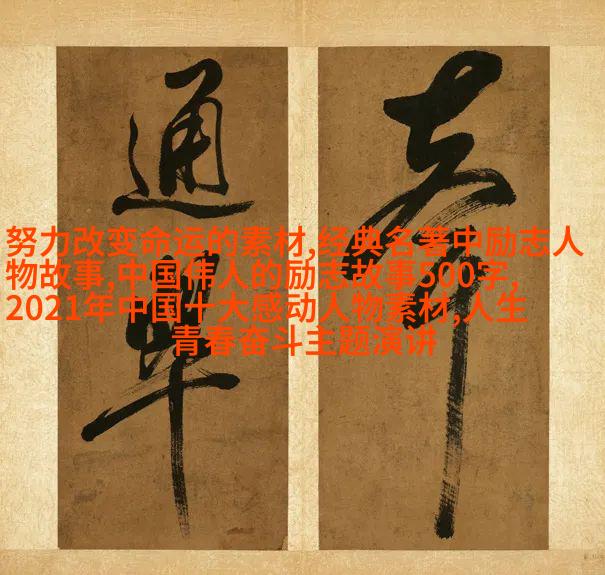 努力改变命运的素材,经典名著中励志人
物故事,中国伟人的励志故事500字,
2021年中国十大感动人物素材,人生
青春奋斗主题演讲
通